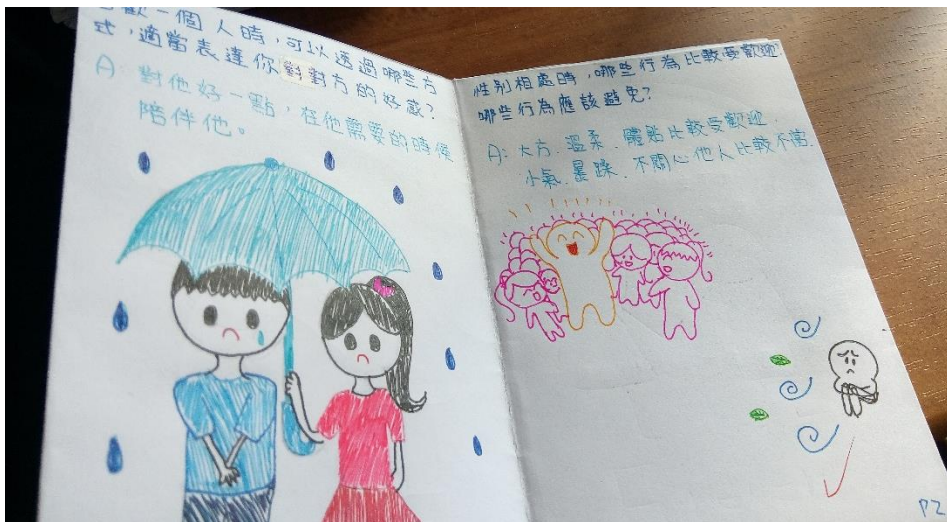 歡一個人時，可以透過哪些方
式，適當表達你對對方的好感？
A: 對他好一點，在他需要的時候
陪伴他。
性別相處時，哪些行為比較受歡迎
哪些行為應該避免？
A: 大方、溫柔、體貼比較受歡迎，
小氣、暴躁、不關心他人比較不
P2